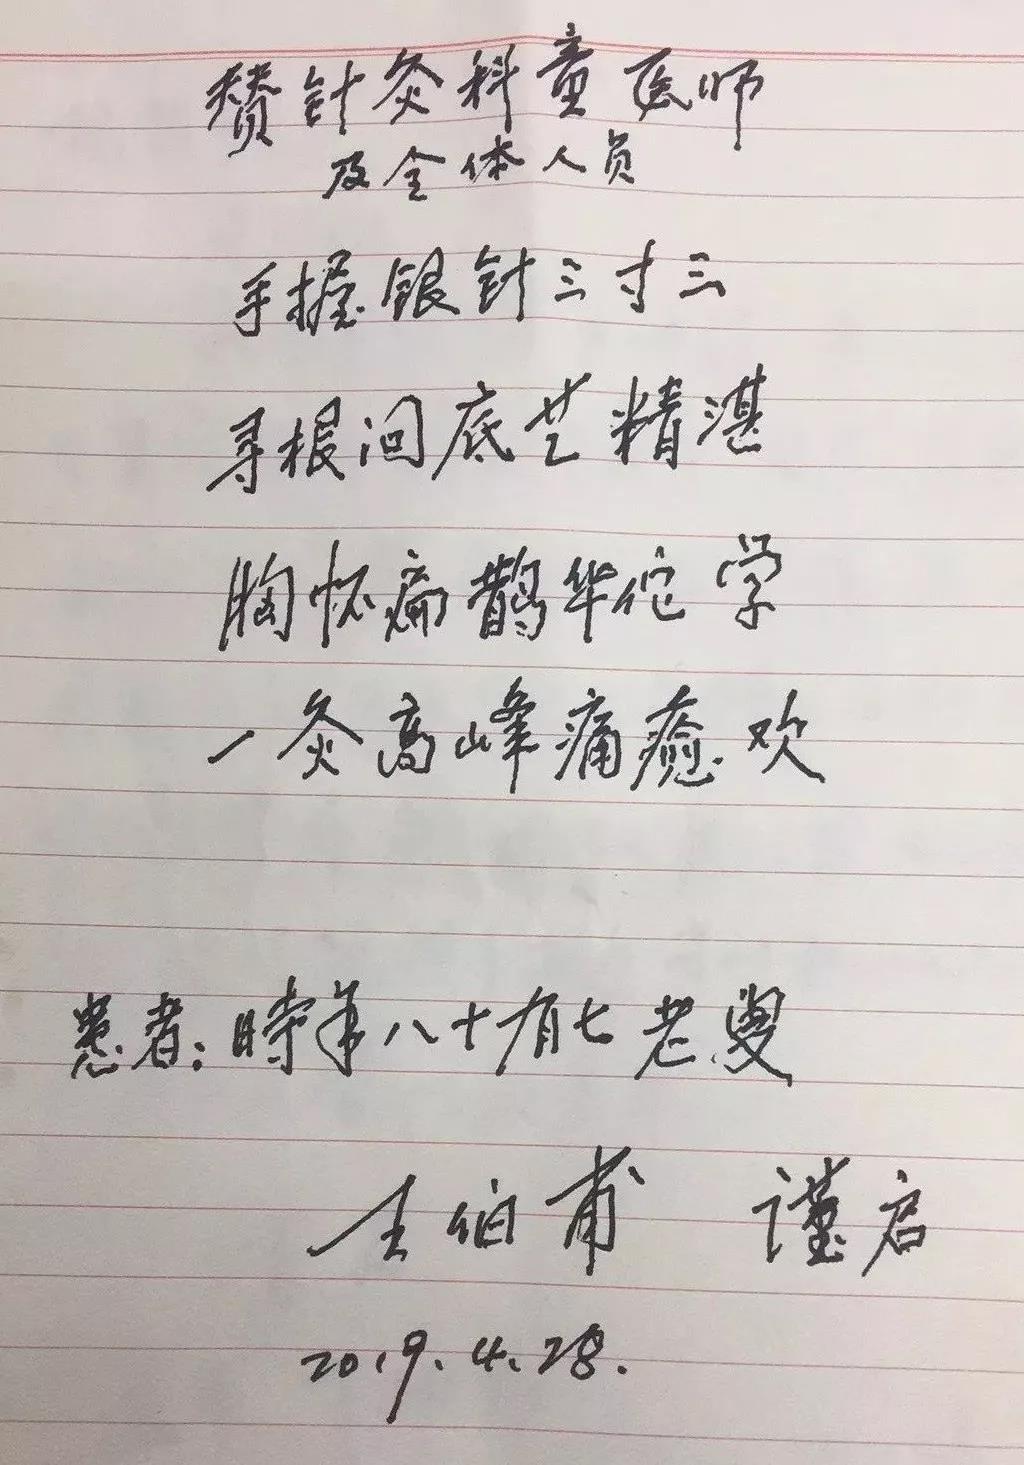 赞针灸科童医师
及全体人员
手握银针三寸三
寻根问底艺精湛
胸怀扁鹊华佗学
一灸高峰痛癒欢
患者：時年八十有七老叟
王伯甫 谨启
2019.4.28.